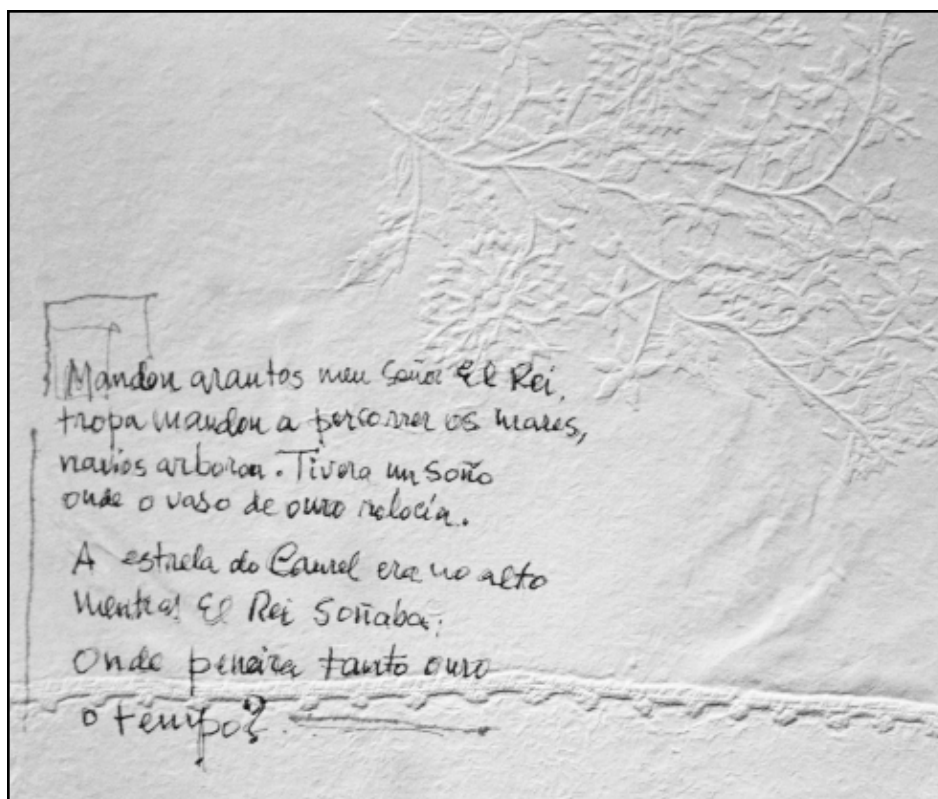 Mandou arautos meu Señor El Rei,
tropa mandou a percorrer os mares,
navios arborou. Tivera un soño
onde o vaso de ouro relocía.
A estrela do Courel era no alto
mentras El Rei soñaba.
Onde peneira tanto ouro
o tempo?